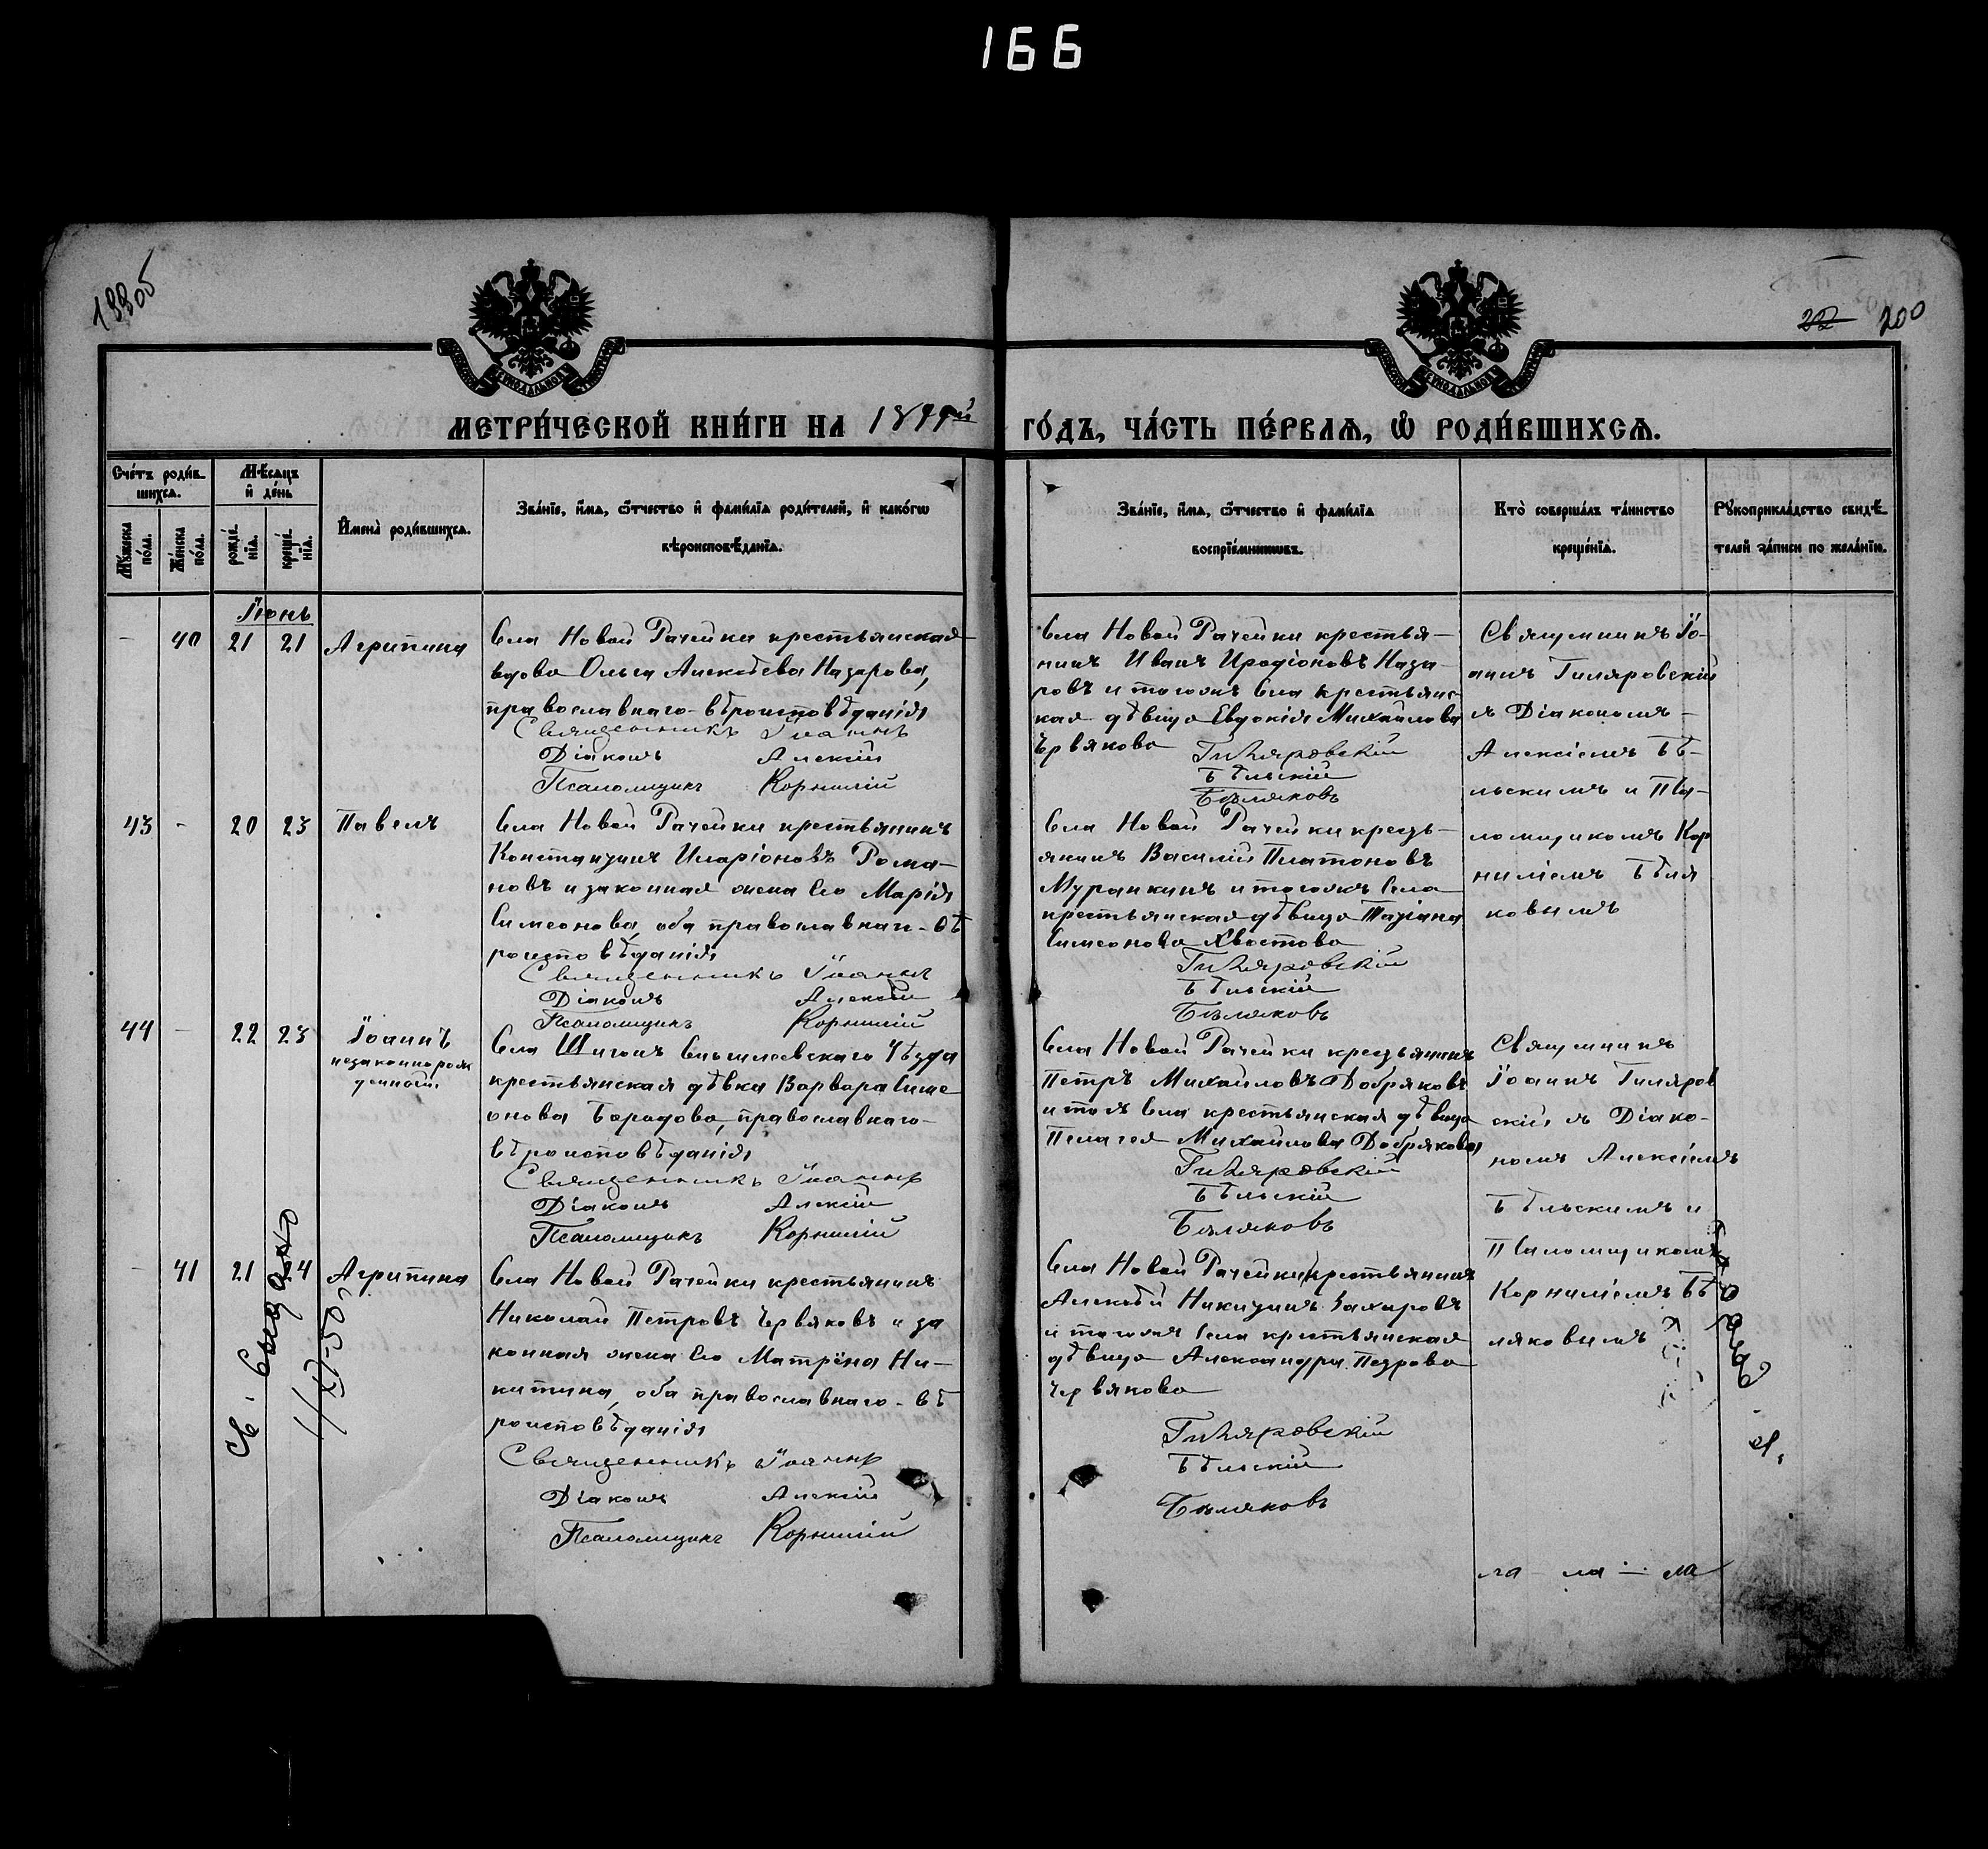 166
199об
22 200
МЕТРИ́ЧЕСКОЙ КНИ́ГИ НА 1899й ГО́ДЪ, ЧА́СТЬ ПЕ́РВАѦ, Ѡ РОДИ́ВШИХСѦ.
Сче́тъ роди́в-
шихсѧ.
Мꙋ́жеска по́ла.
Же́нска по́ла.
Мѣ́сѧцъ и де́нь
рожде́нїѧ.
креще́нїѧ.
Имена̀ роди́вшихсѧ.
Зва́нїе, и́мѧ, ѻ́тчество и фами́лїѧ роди́телей, и како́гѡ
вѣроисповѣ́данїѧ.
Зва́нїе, и́мѧ, ѻ́тчество и фами́лїѧ
воспрїе́мникѡвъ.
Кто̀ соверша́лъ та́инство
креще́нїѧ.
Рꙋкоприкла́дство свидѣ́-
телей за́писи по жела́нїю.
Іюнь
- 40 21 21 Агрипина
Села Новой Рачейки крестьянская
вдова Ольга Алексѣева Назарова,
православнаго вѣроисповѣданія
Священникъ Іоаннъ
Діаконъ Алексій
Псаломщикъ Корнилій
Села Новой Рачейки крестья-
нинъ Иванъ Иродіоновъ Наза-
ровъ и тогожъ села крестьянс-
кая дѣвица Евдокія Михайлова
Червякова
Гиляровскій
Бѣльскій
Бѣляковъ
Священникъ Іо-
аннъ Гиляровскій
съ Діакономъ
Алексіемъ Бѣ-
льскимъ и Пса-
ломщикомъ Кор
ниліемъ Бѣля
ковымъ
43 - 20 23 Павелъ
Села Новой Рачейки крестьянинъ
Константинъ Иларіоновъ Рома-
новъ и законная жена его Марія
Симеонова, оба православнаго вѣ
роисповѣданія
Священникъ Іоаннъ
Діаконъ Алексій
Псаломщикъ Корнилій
Села Новой Рачейки кресть-
янинъ Василій Платоновъ
Муранкинъ и тогожъ села
крестьянская дѣвица Татіана
Симеонова Хвостова
Гиляровскій
Бѣльскій
Бѣляковъ
44 - 22 23 Іоаннъ
незаконнорож
денный.
Села Шигонъ Сенгилеевскаго Уѣзда
крестьянская дѣвка Варвара Симе
онова Бородова, православнаго
вѣроисповѣданія
Священникъ Іоаннъ
Діаконъ Алексій
Псаломщикъ Корнилій
Села Новой Рачейки крестьянинъ
Петръ Михайловъ Добряковъ
и тожъ села крестьянская дѣвица
Пелагея Михайлова Добрякова
Гиляровскій
Бѣльскій
Бѣляковъ
Священникъ
Іоаннъ Гиляров
скій съ Діако-
номъ Алексіемъ
Бѣльскимъ и
Псаломщикомъ
Корниліемъ Бѣ
ляковымъ
- 41 21 24 Агрипина
Села Новой Рачейки крестьянинъ
Николай Петровъ Червяковъ и за
конная жена его Матрёна Ни-
китина, оба православнаго вѣ
роисповѣданія
Священникъ Іоаннъ
Діаконъ Алексій
Псаломщикъ Корнилій
Села Новой Рачейки крестьянинъ
Алексѣй Никитинъ Захаровъ
и тогожъ села крестьянская
дѣвица Александра Петрова
Червякова
Гиляровскій
Бѣльскій
Бѣляковъ